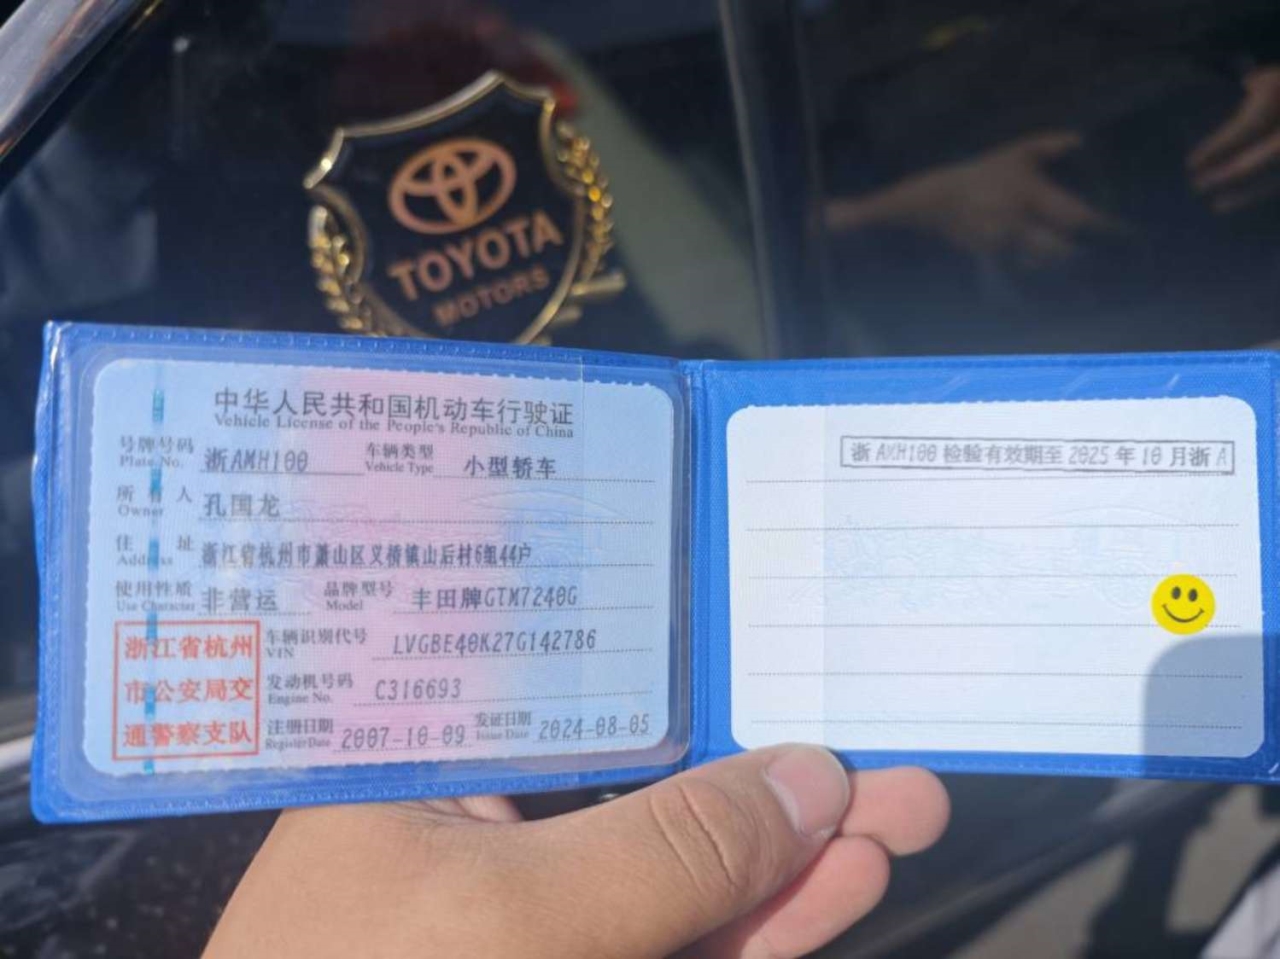 TOYOTA
MOTORS
中华人民共和国机动车行驶证
Vehicle License of the People's Republic of China
号牌号码 浙AMH100 车辆类型 小型轿车
Plate No. Vehicle Type
所有人 孔国龙
Owner
住址 浙江省杭州市萧山区义桥镇山后村6组44户
Address
使用性质 非营运 品牌型号 丰田牌GTM7240G
Use Character Model
浙江省杭州
市公安局交
通警察支队
车辆识别代号 LVGBE40K27G142786
VIN
发动机号码 C316693
Engine No.
注册日期 2007-10-09 发证日期 2024-08-05
Register Date Issue Date
检验有效期至2025年10月浙A